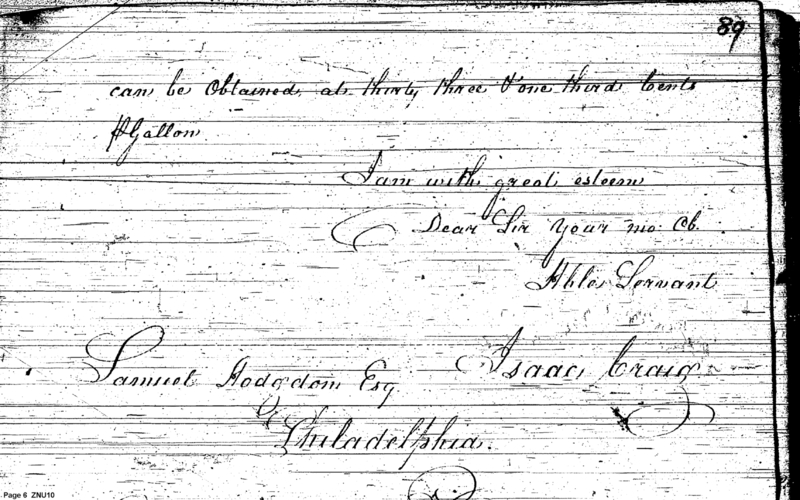 89
can be Obtained at thirty three & one third Cents
⅌ Gallon
I am with great esteem
Dear Sir your mo. Ob.
Hble Servant
Isaac Craig
Samuel Hodgdon Esq.
Philadelphia.
Page 6 ZNU10